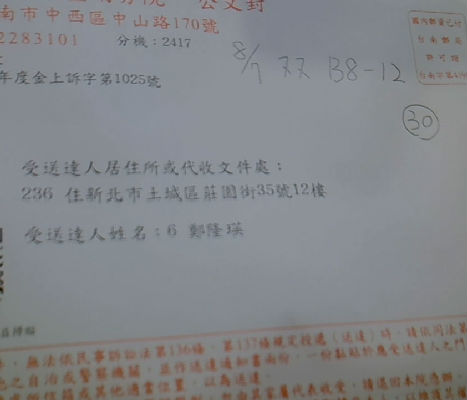 公文封
南市中西區中山路170號
2283101 分機：2417
年度金上訴字第1025號
8/7 双 B8-12
30
國內郵資已付
台南郵局
許可證
受送達人居住所或代收文件處：
236 住新北市土城區莊園街35號12樓
受送達人姓名：6 鄭隆瑛
無法依民事訴訟法第136條、第137條規定投遞（送達）時，請依同法第
之自治或警察機關，並作送達通知書兩份，一份黏貼於應受送達人之門
信箱或其他適當位置，以為送達。